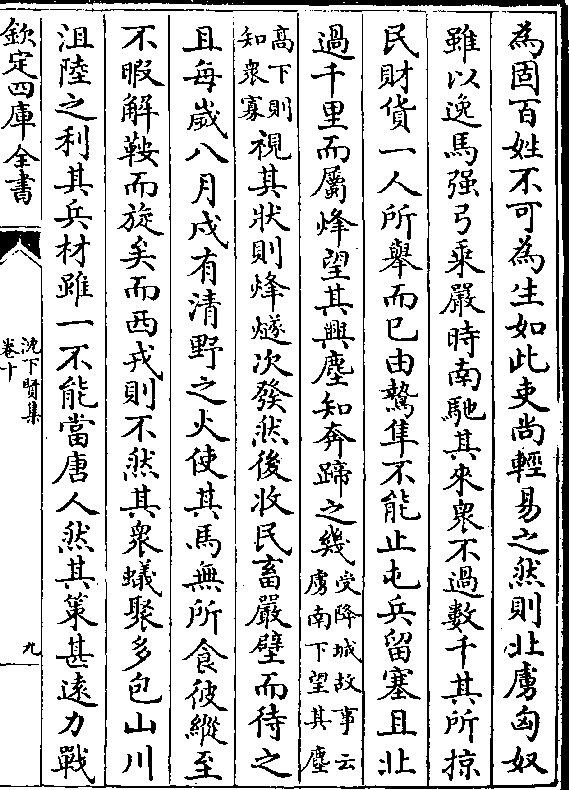 為固百姓不可為生如此吏尚輕易之然則北虜匈奴
雖以逸馬强弓乘嚴時南馳其來衆不過數千其所掠
民財貨一人所舉而已由鷙隼不能止屯兵留塞且北
過千里而屬烽望其興塵知奔蹄之幾受降城故事云虜南下望其塵
高下則知衆寡視其狀則烽燧次發然後收民畜嚴壁而待之
且每歲八月戍有清野之火使其馬無所食彼縱至
不暇解鞍而旋矣而西戎則不然其衆蟻聚多包山川
沮陸之利其兵材雖一不能當唐人然其策甚遠力戰
欽定四庫全書
沈下賢集
卷十
九